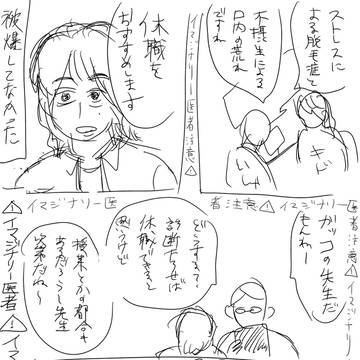 ストレスに
よる脱毛症と
不摂生による
口内の荒れ
ですね
キド
いしゃ
イマジナリー医者注意⚠
休職を
おすすめします
被爆してなかった
イマジナリー医者注意⚠
ガッコの先生だ
もんねー
どうする?
診断書出せば
休職できると
思うけど
授業とかの都合も
あるだろうし先生
次第だね〜
⚠イマジナリー医者!
⚠イマジナリー